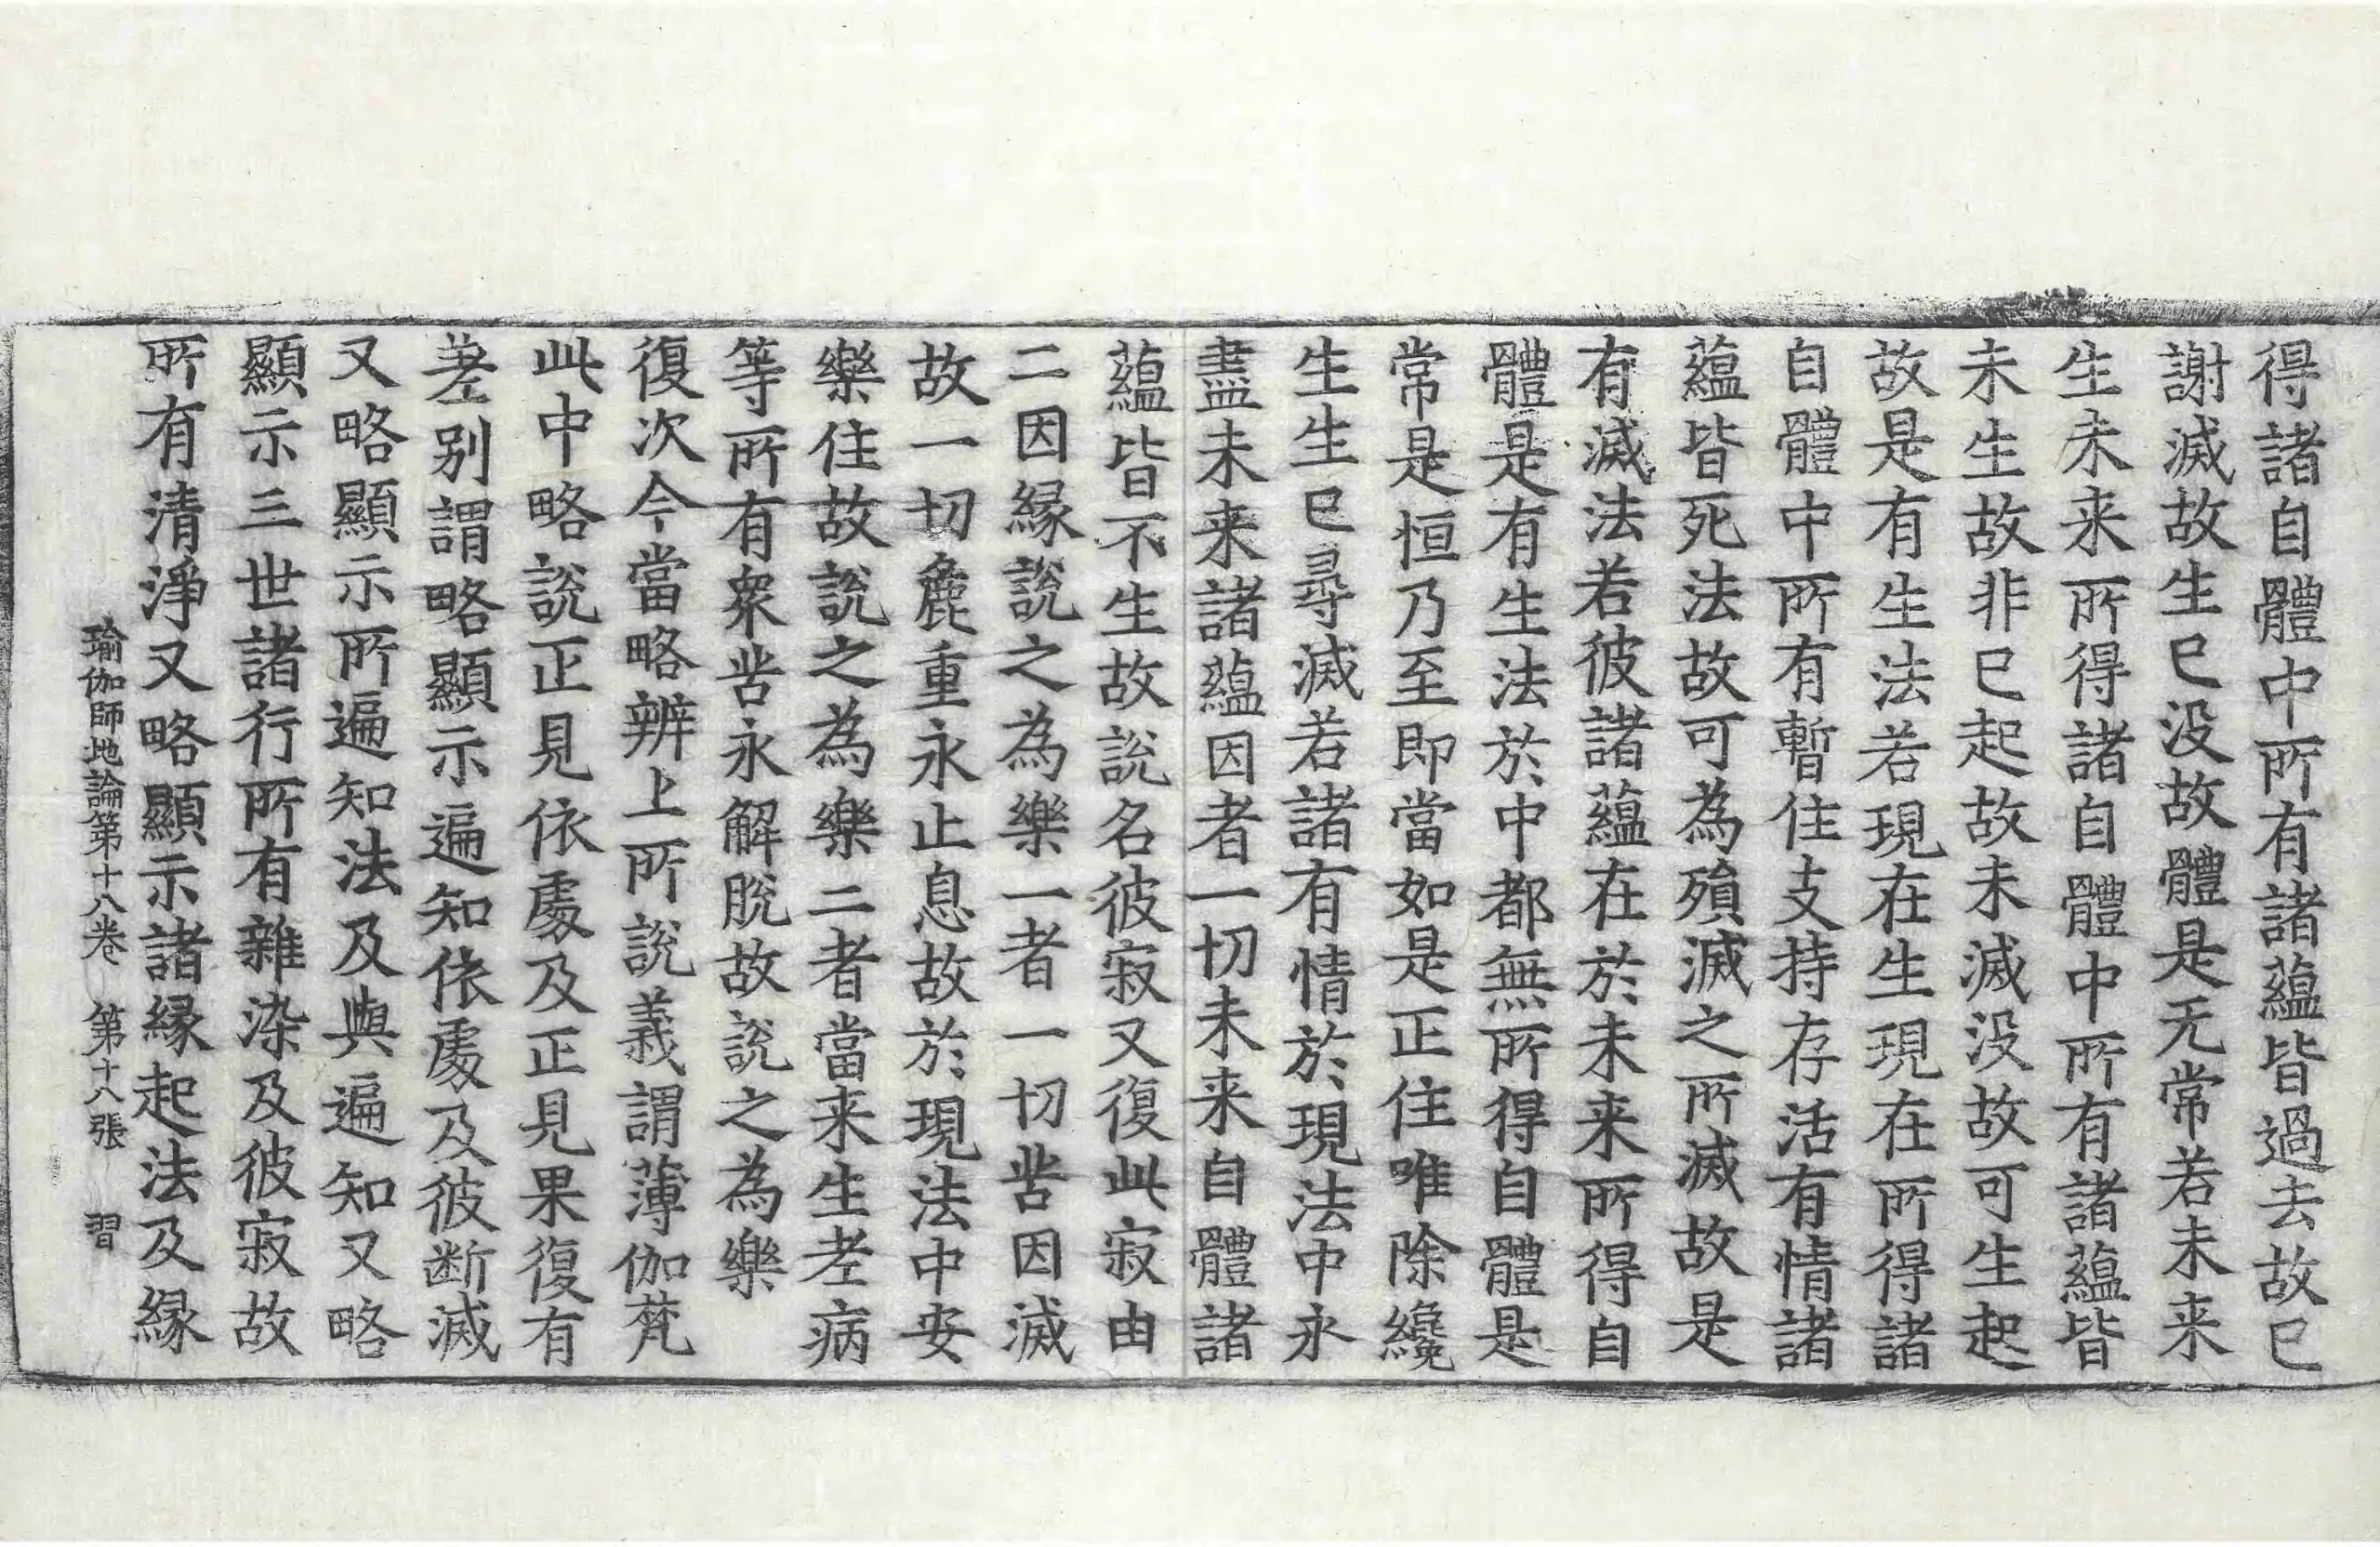 得諸自體中所有諸蘊皆過去故已
謝滅故生已没故體是无常若未来
生未来所得諸自體中所有諸蘊皆
未生故非已起故未滅没故可生起
故是有生法若現在生現在所得諸
自體中所有暫住支持存活有情諸
蘊皆死法故可為殞滅之所滅故是
有滅法若彼諸蘊在於未来所得自
體是有生法於中都無所得自體是
常是恒乃至即當如是正住唯除纔
生生已尋滅若諸有情於現法中永
盡未来諸蘊因者一切未来自體諸
蘊皆不生故說名彼寂又復此寂由
二因縁說之為樂一者一切苦因滅
故一切麁重永止息故於現法中安
樂住故說之為樂二者當来生老病
等所有衆苦永解脫故說之為樂
復次今當略辨上所說義謂薄伽梵
此中略說正見依處及正見果復有
差别謂略顯示遍知依處及彼断滅
又略顯示所遍知法及與遍知又略
顯示三世諸行所有雜染及彼寂故
所有清淨又略顯示諸縁起法及縁
瑜伽師地論第十八卷 第十八張 習